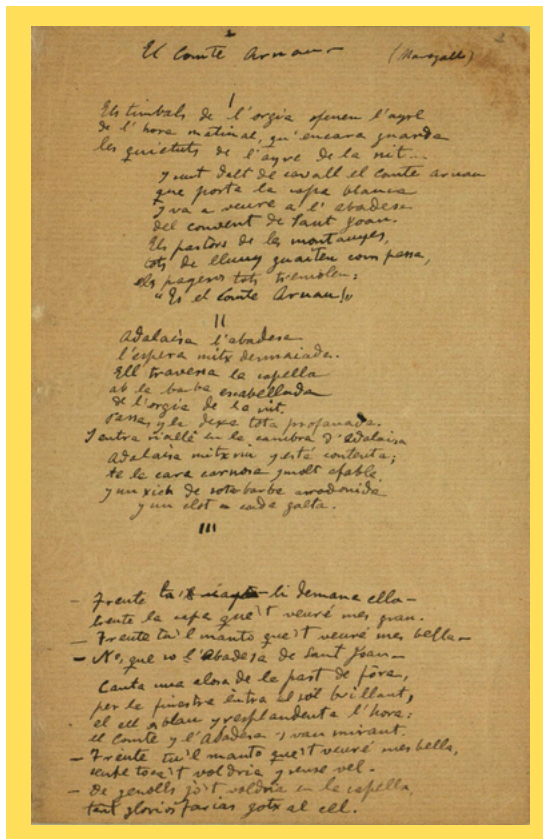 El Comte Arnau (Maragall)
I
Els timbals de l'orgia omplen l'ayre
de l'hora matinal, qu'encara guarda
les quietuts de l'ayre de la nit...
y surt dalt de cavall el comte Arnau
que porta la capa blanca
y va a veure a l'abadesa
del convent de Sant Joan.
Els pastors de les montanyes,
tots de lluny guaiten com passa,
els pagesos tots tremolen:
"Es el Comte Arnau!"
II
Adalaisa l'abadesa
l'espera mitx desmaiada.
Ell travessa la capella
ab la barba escabellada
de l'orgia de la nit.
Passa, y la deixa tota profanada.
Y entra allí en la cambra d'Adalaisa
Adalaisa mitx riu y està contenta;
te la cara carnosa y molt afable
y un xich de sota barba arrodonida
y un clot a cada galta.
III
- Treute li demana ella -
treute la capa que't veuré mes gran.
- Treute tu'l manto que't veuré mes bella -
- No, que so l'Abadesa de Sant Joan -
Canta una alosa de la part de fòra,
per la finestra entra el sol brillant,
el cel es blau y resplandenta l'hora:
el Comte y l'Abadesa s van mirant.
- Treute tu'l manto que't veuré mes bella,
sense toca't voldria y sense vel.
- De genolls jo't voldria en la capella,
tant gloriós farias goix al cel.